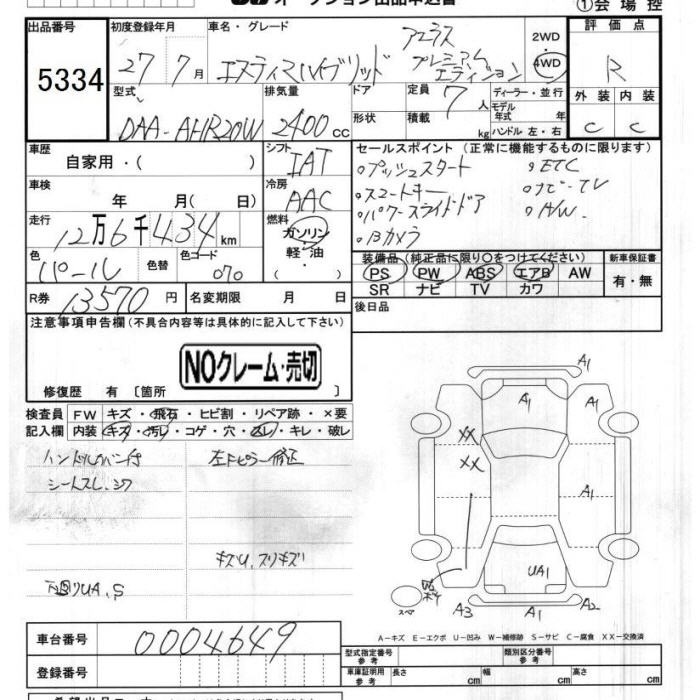 オークション出品申込書
①会場控
出品番号 初度登録年月 車名・グレード 2WD 評価点
5334 27年7月 エスティマハイブリッド アエラス プレミアムエディション 4WD R
型式 排気量 ドア 定員 7人 ディーラー・並行 外装 内装
DAA-AHR20W 2400cc 形状 積載 kg モデル年式 年式 ハンドル 左・右 C C
車歴 シフト セールスポイント(正常に機能するものに限ります)
自家用・( ) IAT 。プッシュスタート 。ETC
車検 冷房 。スマートキー 。ナビ・TV
年 月( 日) AAC 。パワースライドドア 。A/W
走行 燃料 。Bカメラ
12万6千434km ガソリン・軽油・
色 色替 色コード 装備品(純正品に限り○をつけてください) 新車保証書
パール 070 PS PW ABS エアB AW 有・無
SR ナビ TV カワ
R券 13570円 名変期限 月 日 後日品
注意事項申告欄(不具合内容等は具体的に記入して下さい)
NOクレーム・売切
修復歴 有〔箇所 〕
検査員 FW キズ・飛石・ヒビ割・リペア跡・×要
記入欄 内装 キズ・汚れ・コゲ・穴・スレ・キレ・破レ
シートスレ、シワ 左Fピラー修正
キズU、スリキズ
下回りUA、S
A1
A1 A1
XX
XX
A1
UA1
スペ A3 A1 A2
A-キズ E-エクボ U-凹み W-補修跡 S-サビ C-腐食 XX-交換済
車台番号 0004649 型式指定番号 参考 類別区分番号 参考
登録番号 車庫証明用 参考 長さ cm 幅 cm 高さ cm